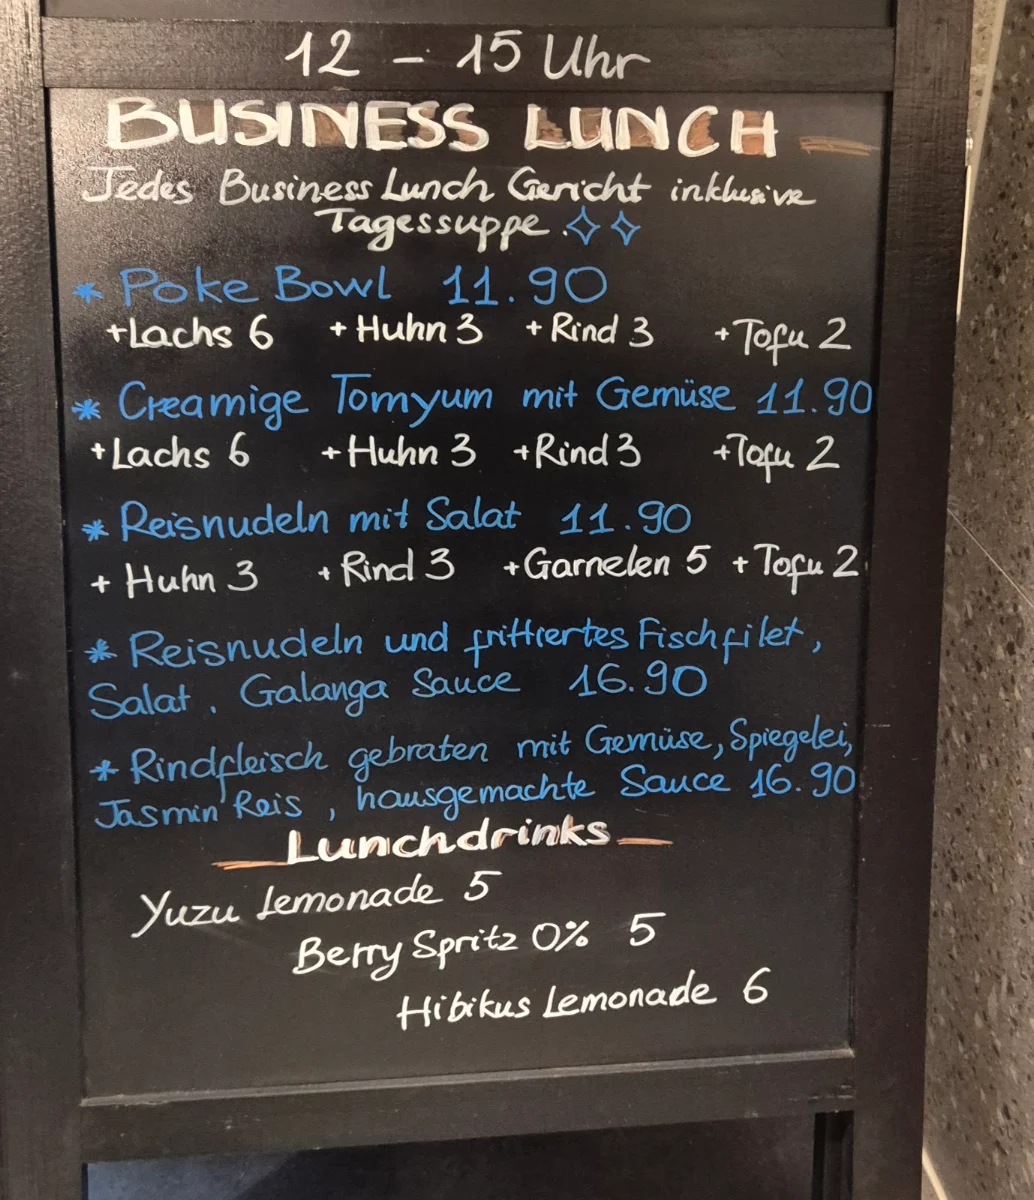 12 - 15 Uhr
BUSINESS LUNCH
Jedes Business Lunch Gericht inklusive
Tagessuppe.
* Poke Bowl 11.90
+Lachs 6 +Huhn 3 +Rind 3 +Tofu 2
* Creamige Tomyum mit Gemüse 11.90
+Lachs 6 +Huhn 3 +Rind 3 +Tofu 2
* Reisnudeln mit Salat 11.90
+ Huhn 3 + Rind 3 +Garnelen 5 + Tofu 2
* Reisnudeln und frittiertes Fischfilet,
Salat, Galanga Sauce 16.90
* Rindfleisch gebraten mit Gemüse, Spiegelei,
Jasmin Reis, hausgemachte Sauce 16.90
Lunchdrinks
Yuzu Lemonade 5
Berry Spritz 0% 5
Hibikus Lemonade 6